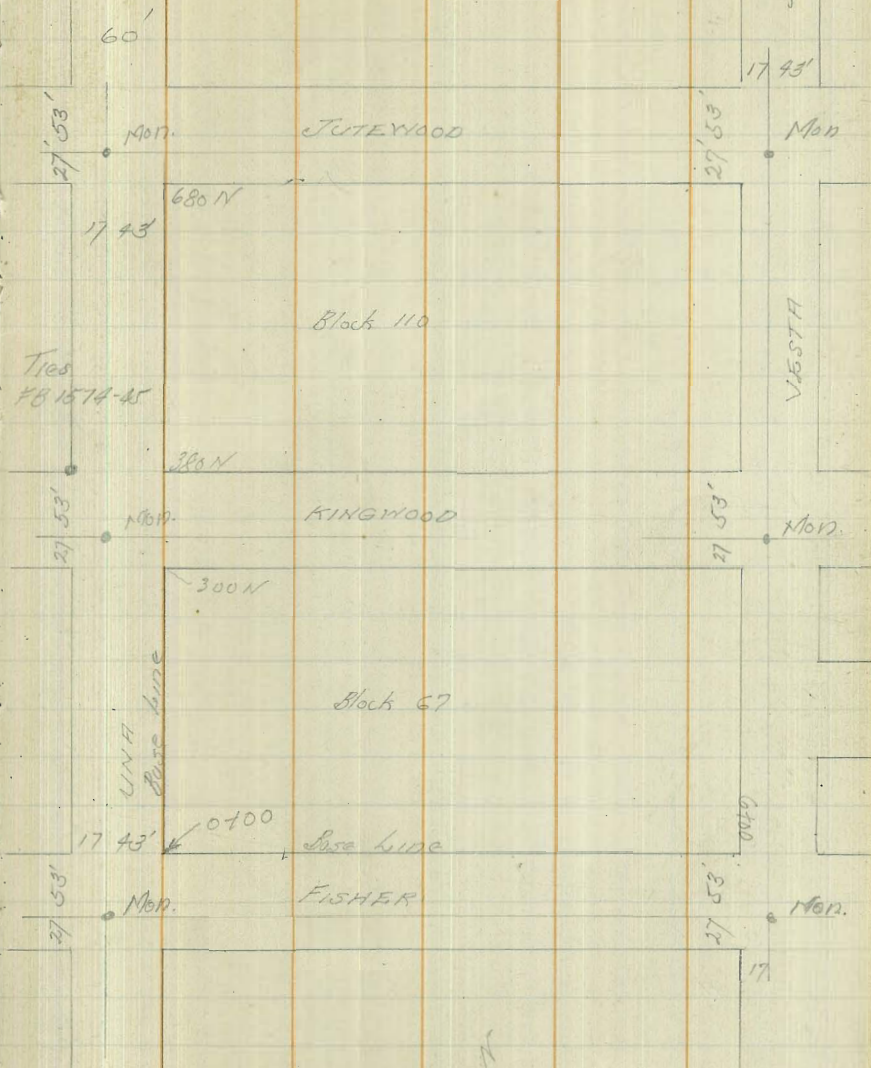 60'
17 43'
27' 53'
Mon.
JUTEWOOD
27' 53'
Mon
680 N
17 43'
Block 110
VESTA
Ties
FB 1574-45
380 N
27 53'
Mon.
KINGWOOD
27 53'
Mon.
300 N
Block 67
UNA
Base Line
0+00
17 43'
Base Line
6+00
27 53'
Mon.
FISHER
27 53'
Mon.
17